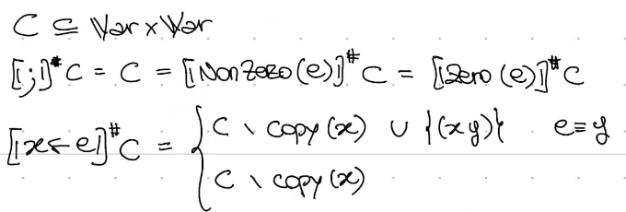 C ⊆ Var × Var
⟦;⟧# C = C = ⟦NonZero(e)⟧# C = ⟦Zero(e)⟧# C
⟦x ← e⟧# C = { C \ copy(x) ∪ {(x y)} e ≡ y
C \ copy(x)